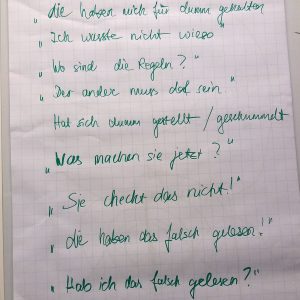 „die haben mich für dumm gehalten
„Ich wusste nicht wieso"
„Wo sind die Regeln?"
„Der andere muss doof sein"
Hat sich dumm gestellt / geschummelt
„Was machen sie jetzt?"
„Sie checkt das nicht!"
„die haben das falsch gelesen!"
„Hab ich das falsch gelesen?"